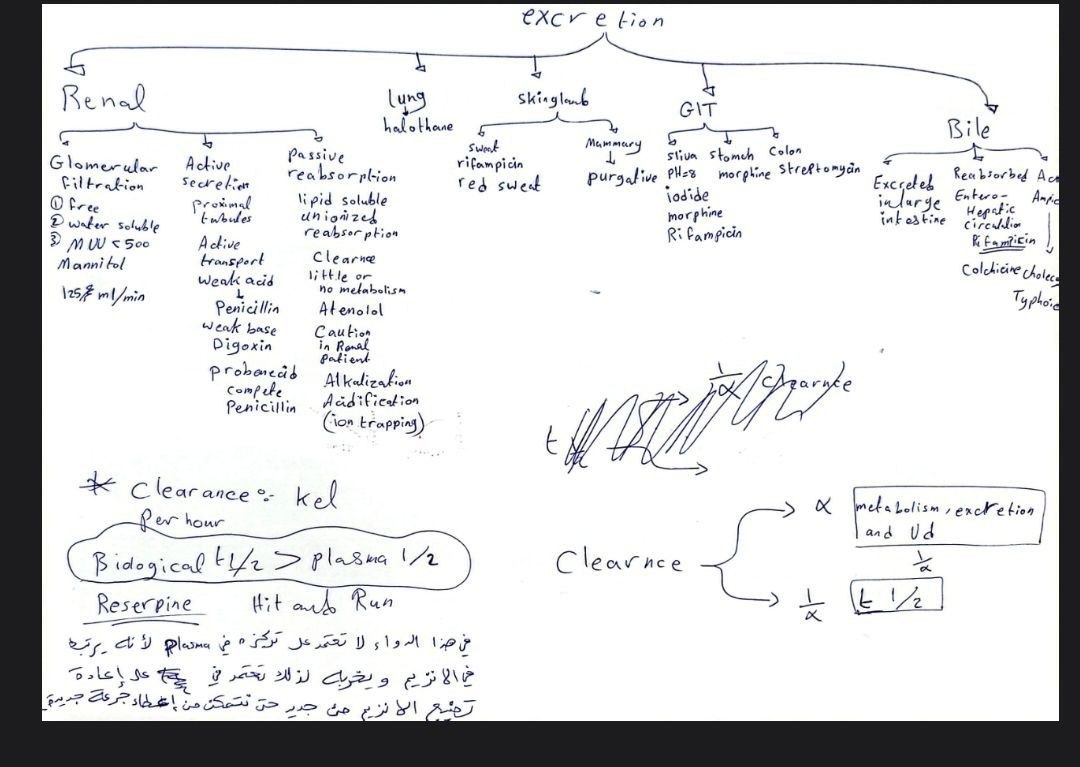 excretion
Renal
Glomerular
filtration
① free
② water soluble
③ MW < 500
Mannitol
125 ml/min
Active
secretion
proximal
tubules
Active
transport
weak acid
↓
Penicillin
weak base
Digoxin
probenecid
compete
Penicillin
Passive
reabsorption
lipid soluble
unionized
reabsorption
Clearnce
little or
no metabolism
Atenolol
Caution
in Renal
patient
Alkalization
Acidification
(ion trapping)
Lung
halothane
skinglanb
sweat
rifampicin
red sweat
Mammary
purgative
GIT
sliva
PH=8
iodide
morphine
Rifampicin
stomch
morphine
Colon
Streptomycin
Bile
Excreted
in large
intestine
Reabsorbed
Entero-
Hepatic
circulation
Rifampicin
Colchicine
1/α clearnce
t
* Clearance:- Kel
Per hour
Biological t1/2 > plasma 1/2
Reserpine Hit and Run
في هذا الدواء لا تعتمد على تركيزه في plasma لأنه يرتبط
في الانزيم ويخربه لذلك تعتمد في على إعادة
تصنيع الانزيم من جديد حتى نتمكن من إعطاء جرعة جديدة
Clearnce
α metabolism, excretion
and Vd
1/α
1/α t 1/2